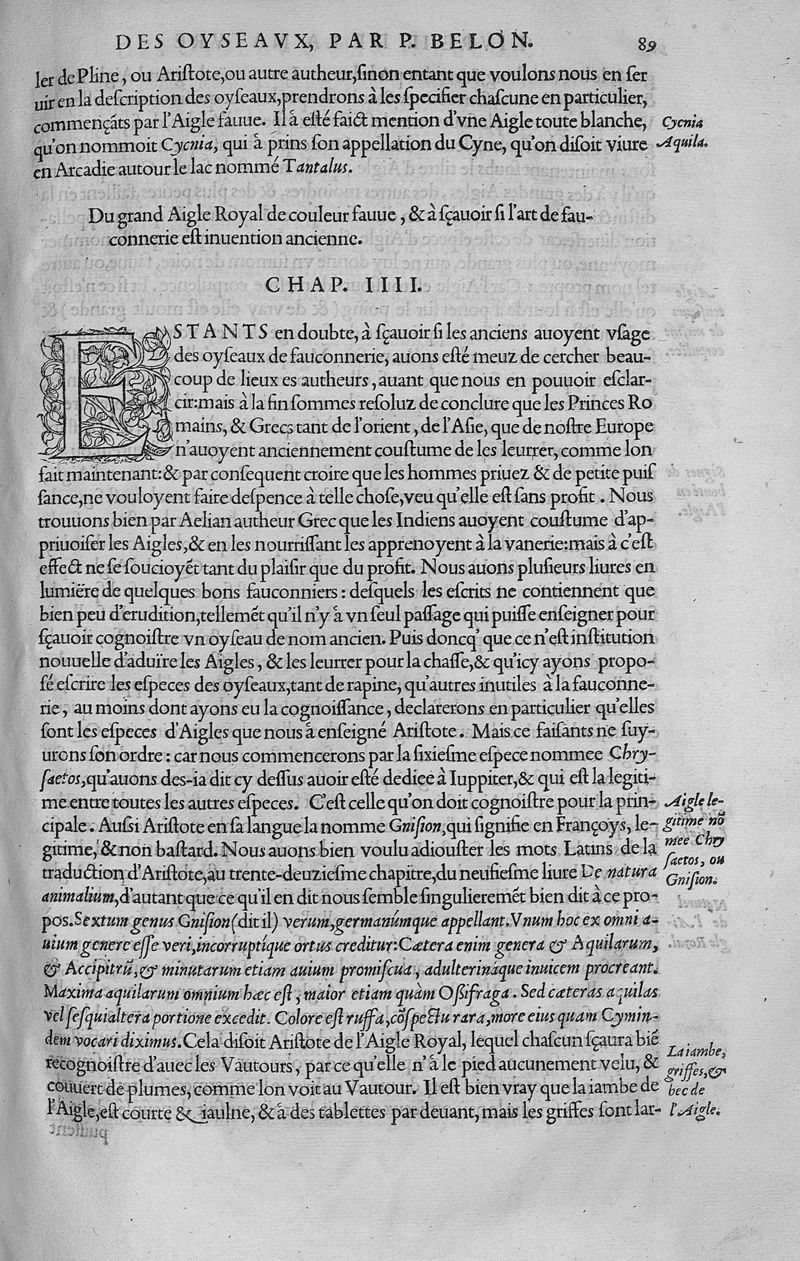 DES OYSEAVX, PAR P. BELON. 89
ler de Pline, ou Ariſtote, ou autre autheur, ſinon entant que voulons nous en ſer
uir en la deſcription des oyſeaux, prendrons à les ſpecifier chaſcune en particulier,
commençãts par l'Aigle fauue. Il à eſté faict mention d'vne Aigle toute blanche,
qu'on nommoit Cycnia, qui à prins ſon appellation du Cyne, qu'on diſoit viure
en Arcadie autour le lac nommé Tantalus.
Cycnia
Aquila.
Du grand Aigle Royal de couleur fauue, & à ſçauoir ſi l'art de fau-
connerie eſt inuention ancienne.
CHAP. IIII.
ESTANTS en doubte, à ſçauoir ſi les anciens auoyent vſage
des oyſeaux de fauconnerie, auons eſté meuz de cercher beau-
coup de lieux es autheurs, auant que nous en pouuoir eſclar-
cir: mais à la fin ſommes reſoluz de conclure que les Princes Ro
mains, & Grecs tant de l'orient, de l'Aſie, que de noſtre Europe
n'auoyent anciennement couſtume de les leurrer, comme lon
fait maintenant: & par conſequent croire que les hommes priuez & de petite puiſ
ſance, ne vouloyent faire deſpence à telle choſe, veu qu'elle eſt ſans profit. Nous
trouuons bien par Aelian autheur Grec que les Indiens auoyent couſtume d'ap-
priuoiſer les Aigles, & en les nourriſſant les apprenoyent à la vanerie: mais à c'eſt
effect ne ſe ſoucioyẽt tant du plaiſir que du profit. Nous auons pluſieurs liures en
lumiëre de quelques bons fauconniers: deſquels les eſcrits ne contiennent que
bien peu d'erudition, tellemẽt qu'il n'y à vn ſeul paſſage qui puiſſe enſeigner pour
ſçauoir cognoiſtre vn oyſeau de nom ancien. Puis doncq' que ce n'eſt inſtitution
nouuelle d'aduïre les Aigles, & les leurrer pour la chaſſe, & qu'icy ayons propo-
ſé eſcrire les eſpeces des oyſeaux, tant de rapine, qu'autres inutiles à la fauconne-
rie, au moins dont ayons eu la cognoiſſance, declarerons en particulier qu'elles
ſont les eſpeces d'Aigles que nous à enſeigné Ariſtote. Mais ce faiſants ne ſuy-
urons ſon ordre: car nous commencerons par la ſixieſme eſpece nommee Chry-
ſaetos, qu'auons des-ia dit cy deſſus auoir eſté dedice à Iuppiter, & qui eſt la legiti-
me entre toutes les autres eſpeces. C'eſt celle qu'on doit cognoiſtre pour la prin-
cipale. Auſsi Ariſtote en ſa langue la nomme Gniſion, qui ſignifie en Françoys, le-
gitime, & non baſtard. Nous auons bien voulu adiouſter les mots Latins de la
traduction d'Ariſtote, au trente-deuzieſme chapitre, du neufieſme liure De natura
animalium, d'autant que ce qu'il en dit nous ſemble ſingulieremẽt bien dit à ce pro-
pos. Sextum genus Gniſion (dit il) verum, germanúmque appellant. Vnum hoc ex omni a-
uium genere eſſe veri, incorruptíque ortus creditur: Cætera enim genera & Aquilarum,
& Accipitrũ, & minutarum etiam auium promiſcua, adulterináque inuicem procreant.
Maxima aquilarum omnium hæc eſt, maior etiam quàm Oſsifraga. Sed cæteras aquilas
vel ſeſquialtera portione excedit. Colore eſt ruffa, cõſpectu rara, more eius quam Cymin-
dem vocari diximus. Cela diſoit Ariſtote de l'Aigle Royal, lequel chaſcun ſçaura biẽ
recognoiſtre d'auec les Vautours, par ce qu'elle n'à le pied aucunement velu, &
couuert de plumes, comme lon voit au Vautour. Il eſt bien vray que la iambe de
l'Aigle, eſt courte & iaulne, & à des tablettes par deuant, mais les griffes ſont lar-
Aigle le-
gitime nõ
mee Chry
ſaetos, ou
Gniſion.
La iambe,
griffes, &
bec de
l'Aigle.